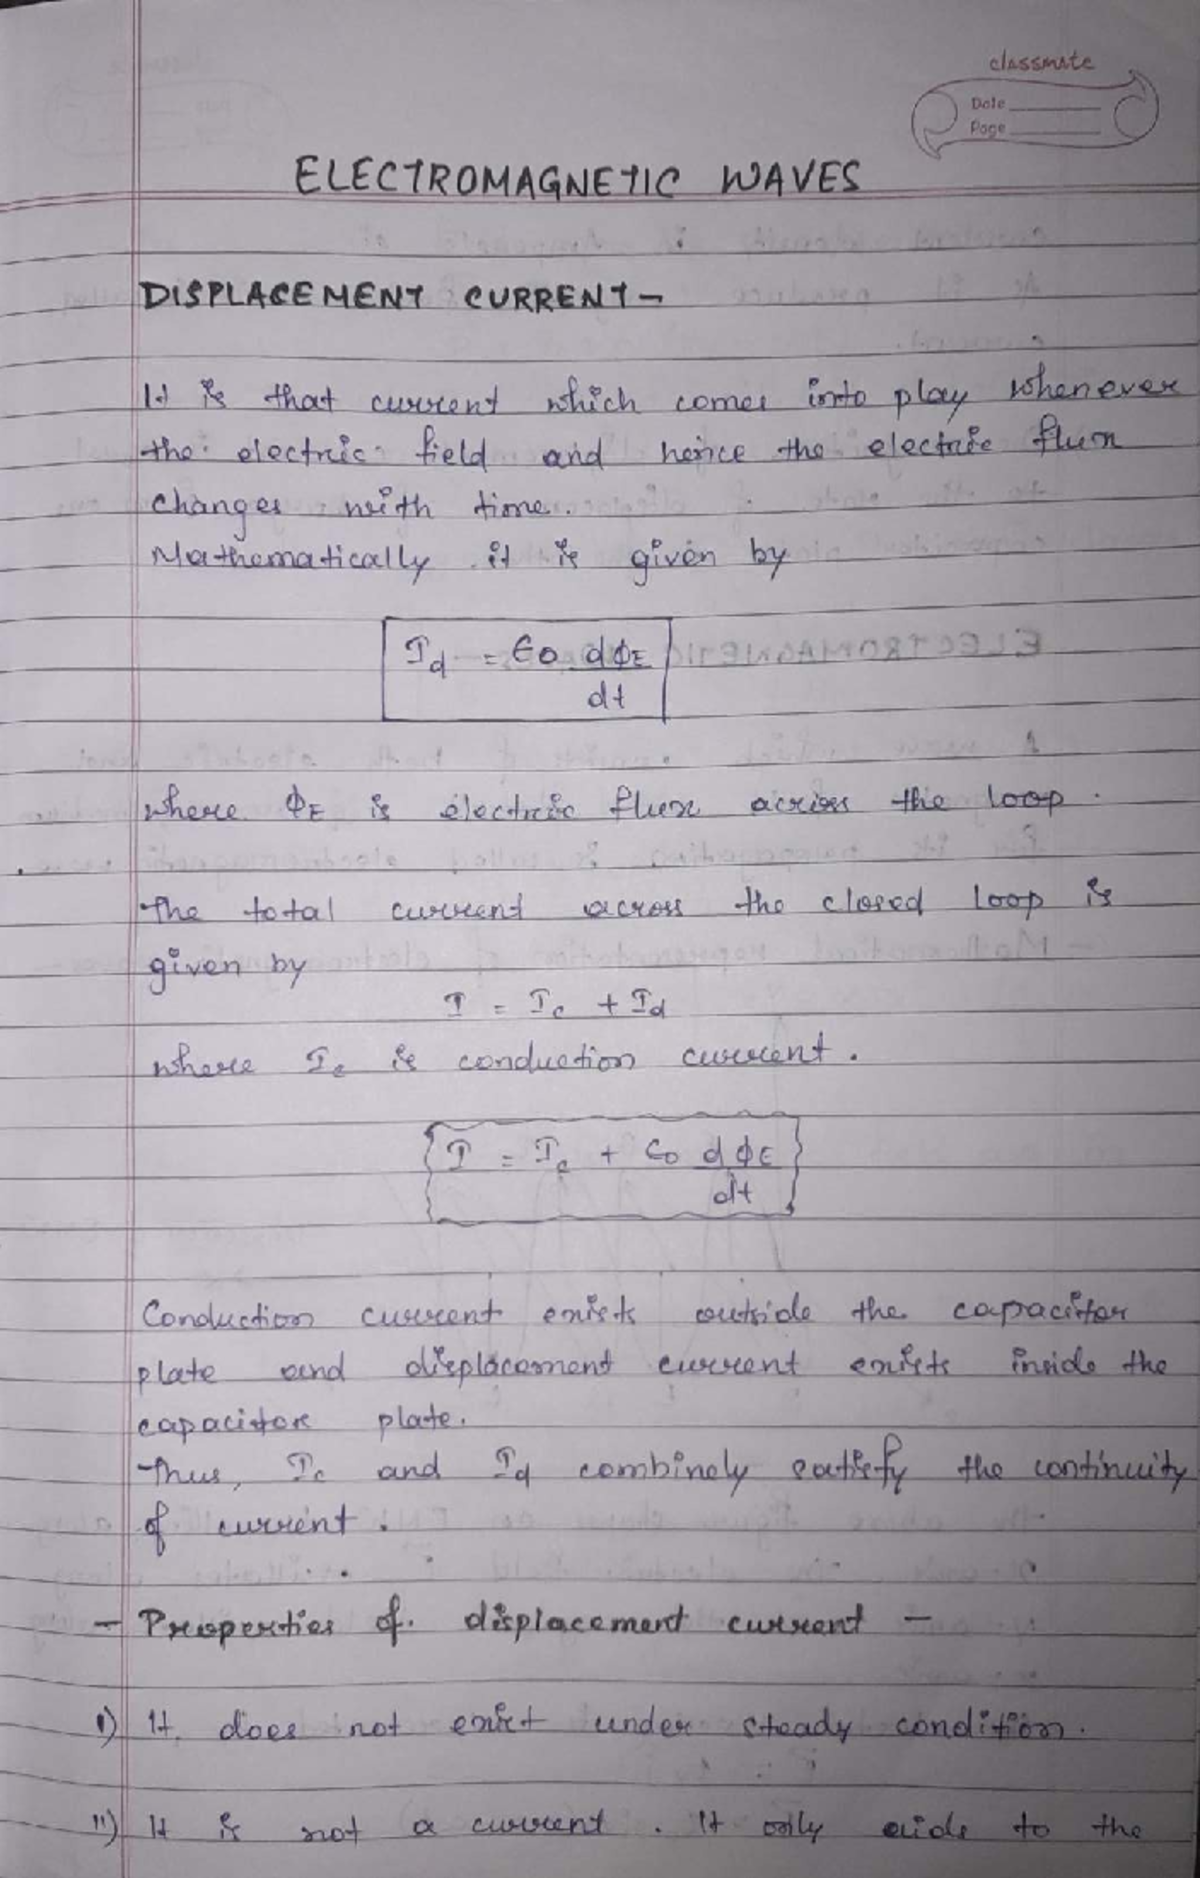 classmate
Date
Page
ELECTROMAGNETIC WAVES
DISPLACEMENT CURRENT-
It is that current which comes into play whenever
the electric field and hence the electric flux
changes with time.
Mathematically it is given by
I_d = ϵ0 dϕE
dt
where ϕE is electric flux across the loop.
The total current across the closed loop is
given by
I = Ic + Id
where Ic is conduction current.
I = Ic + ϵ0 dϕE
dt
Conduction current exists outside the capacitor
plate and displacement current exists inside the
capacitor plate.
Thus, Ic and Id combinely satisfy the continuity
of current.
- Properties of displacement current -
i) It does not exist under steady condition.
ii) It is not a current. It only adds to the